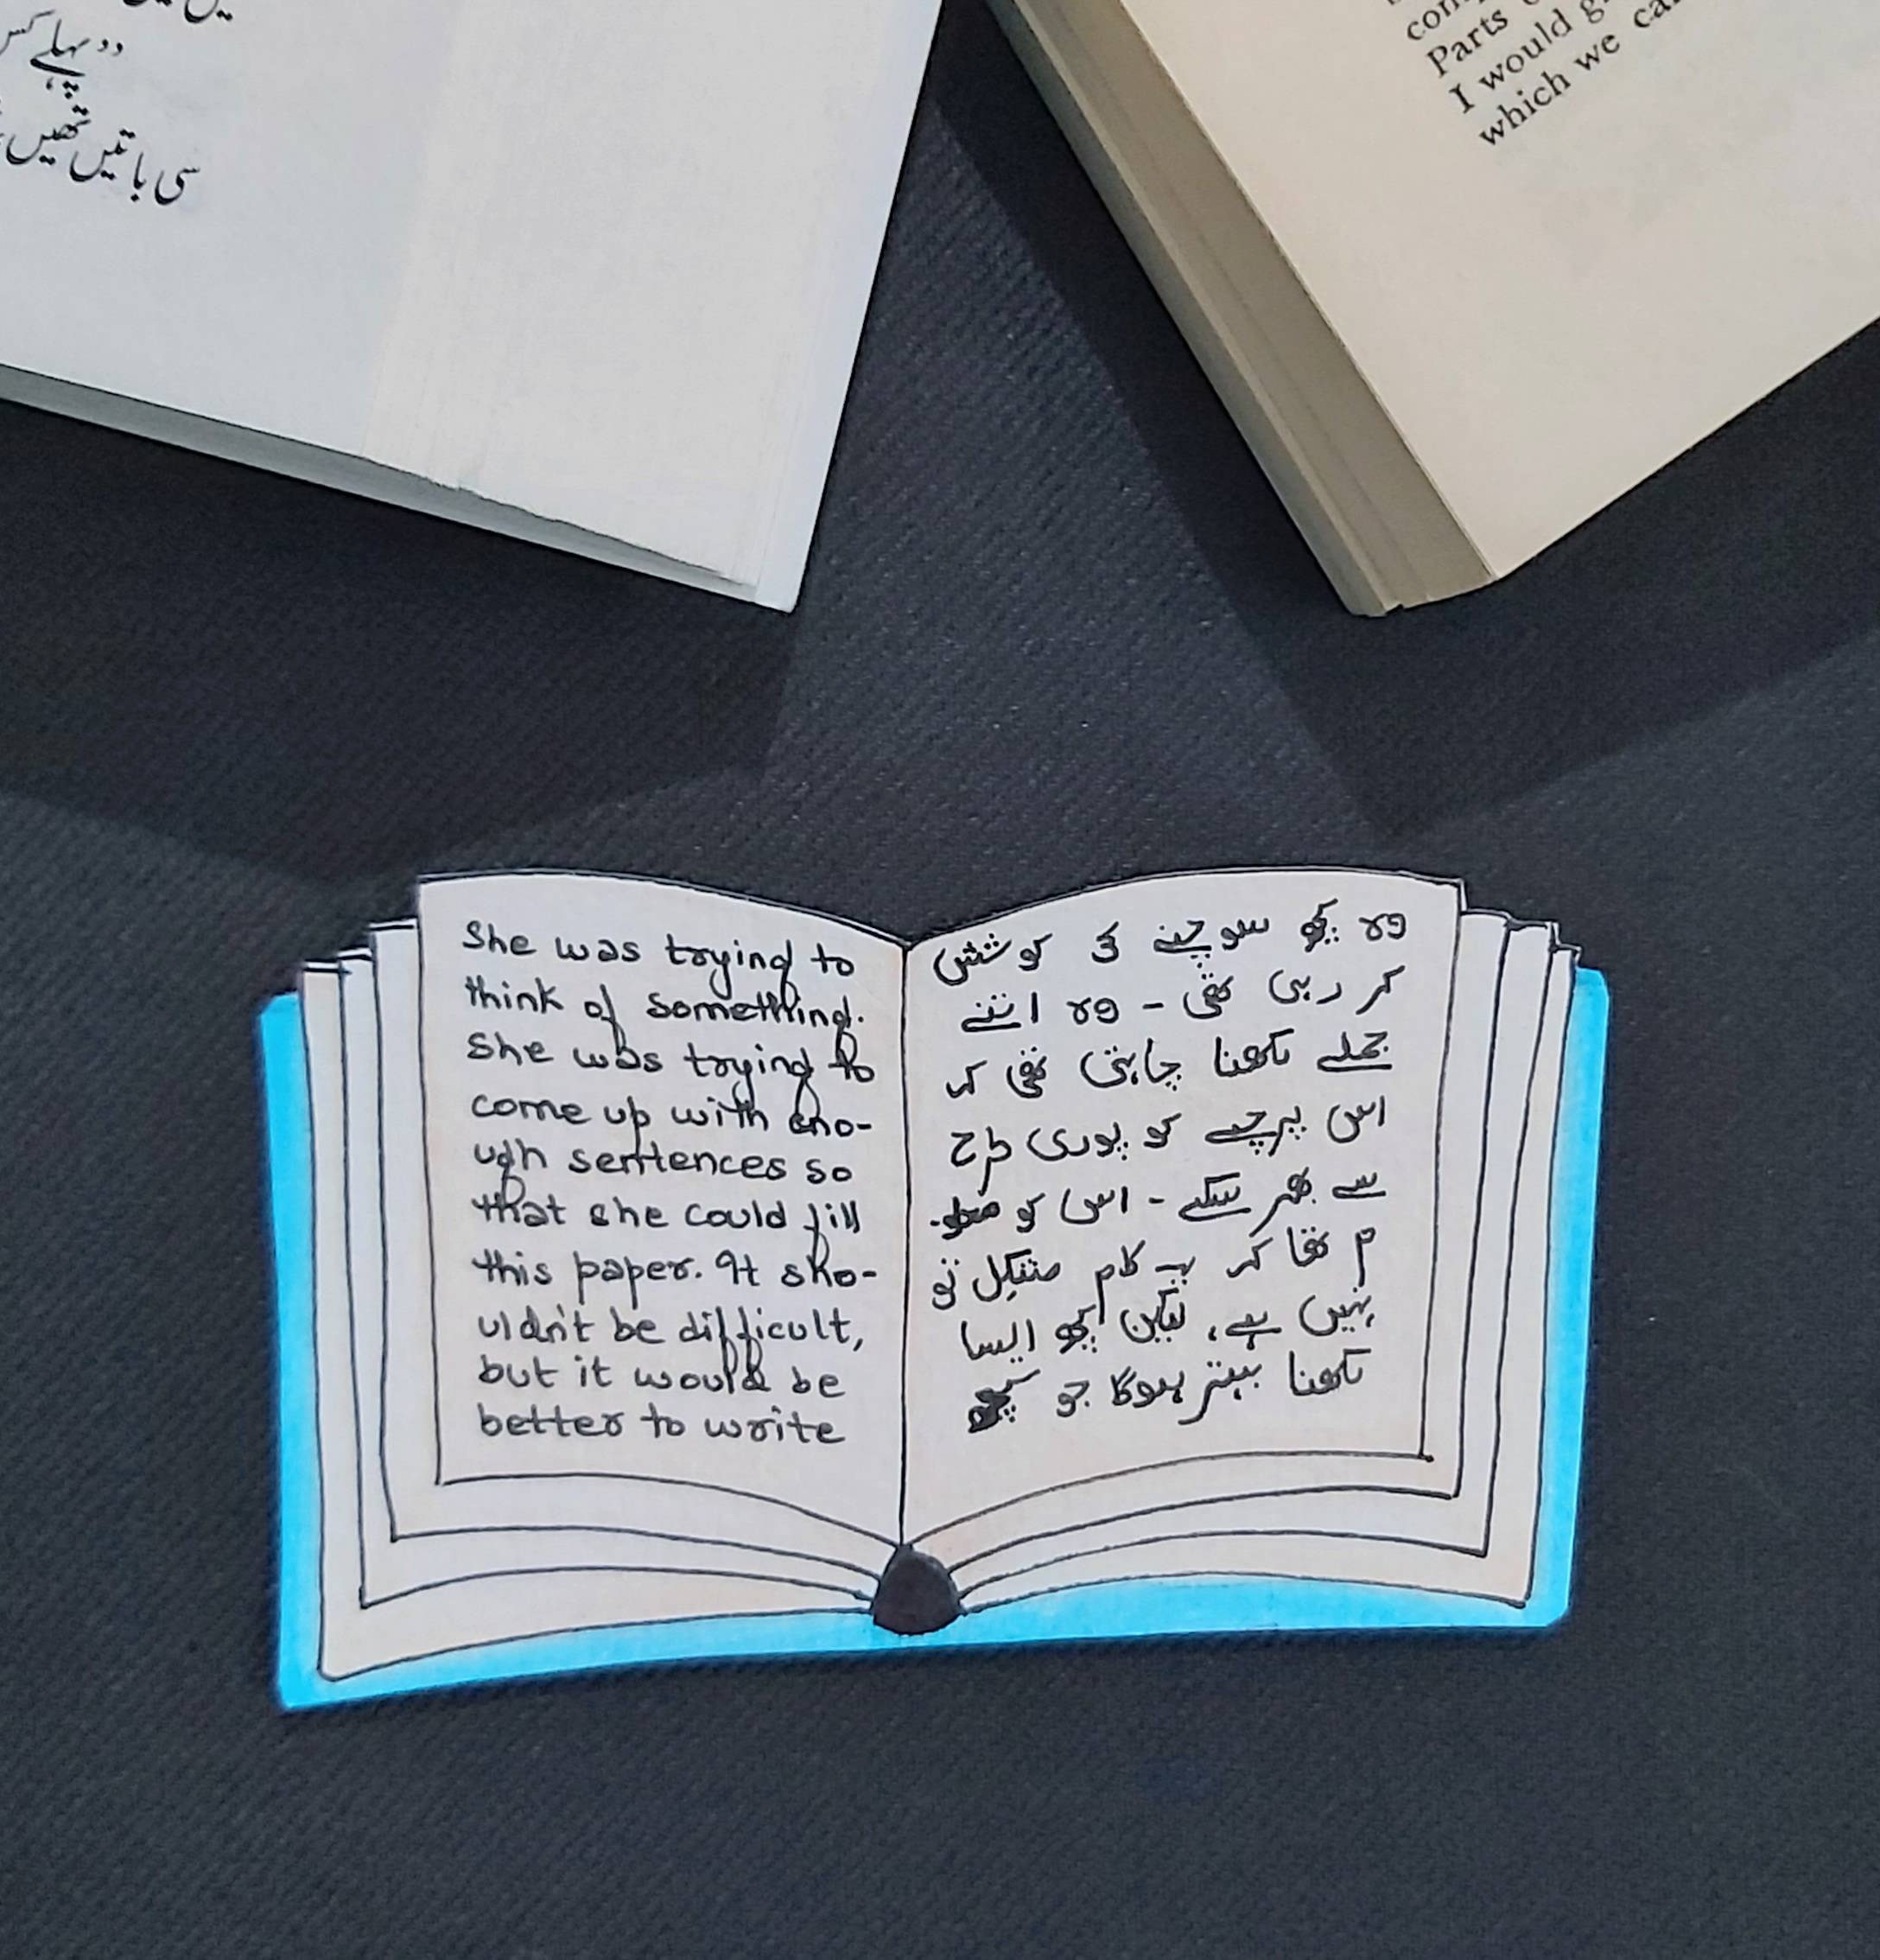 دو پہلے کس
سی باتیں تھیں
com
Parts
I would g
which we ca
She was trying to
think of something.
She was trying to
come up with eno-
ugh sentences so
that she could fill
this paper. It sho-
uldn't be difficult,
but it would be
better to write
وہ کچھ سوچنے کی کوشش
کر رہی تھی - وہ اتنے
جملے لکھنا چاہتی تھی کہ
اس پرچے کو پوری طرح
سے بھر سکے - اس کو معلو-
م تھا کہ یہ کام مشکل تو
نہیں ہے، لیکن کچھ ایسا
لکھنا بہتر ہوگا جو کچھ